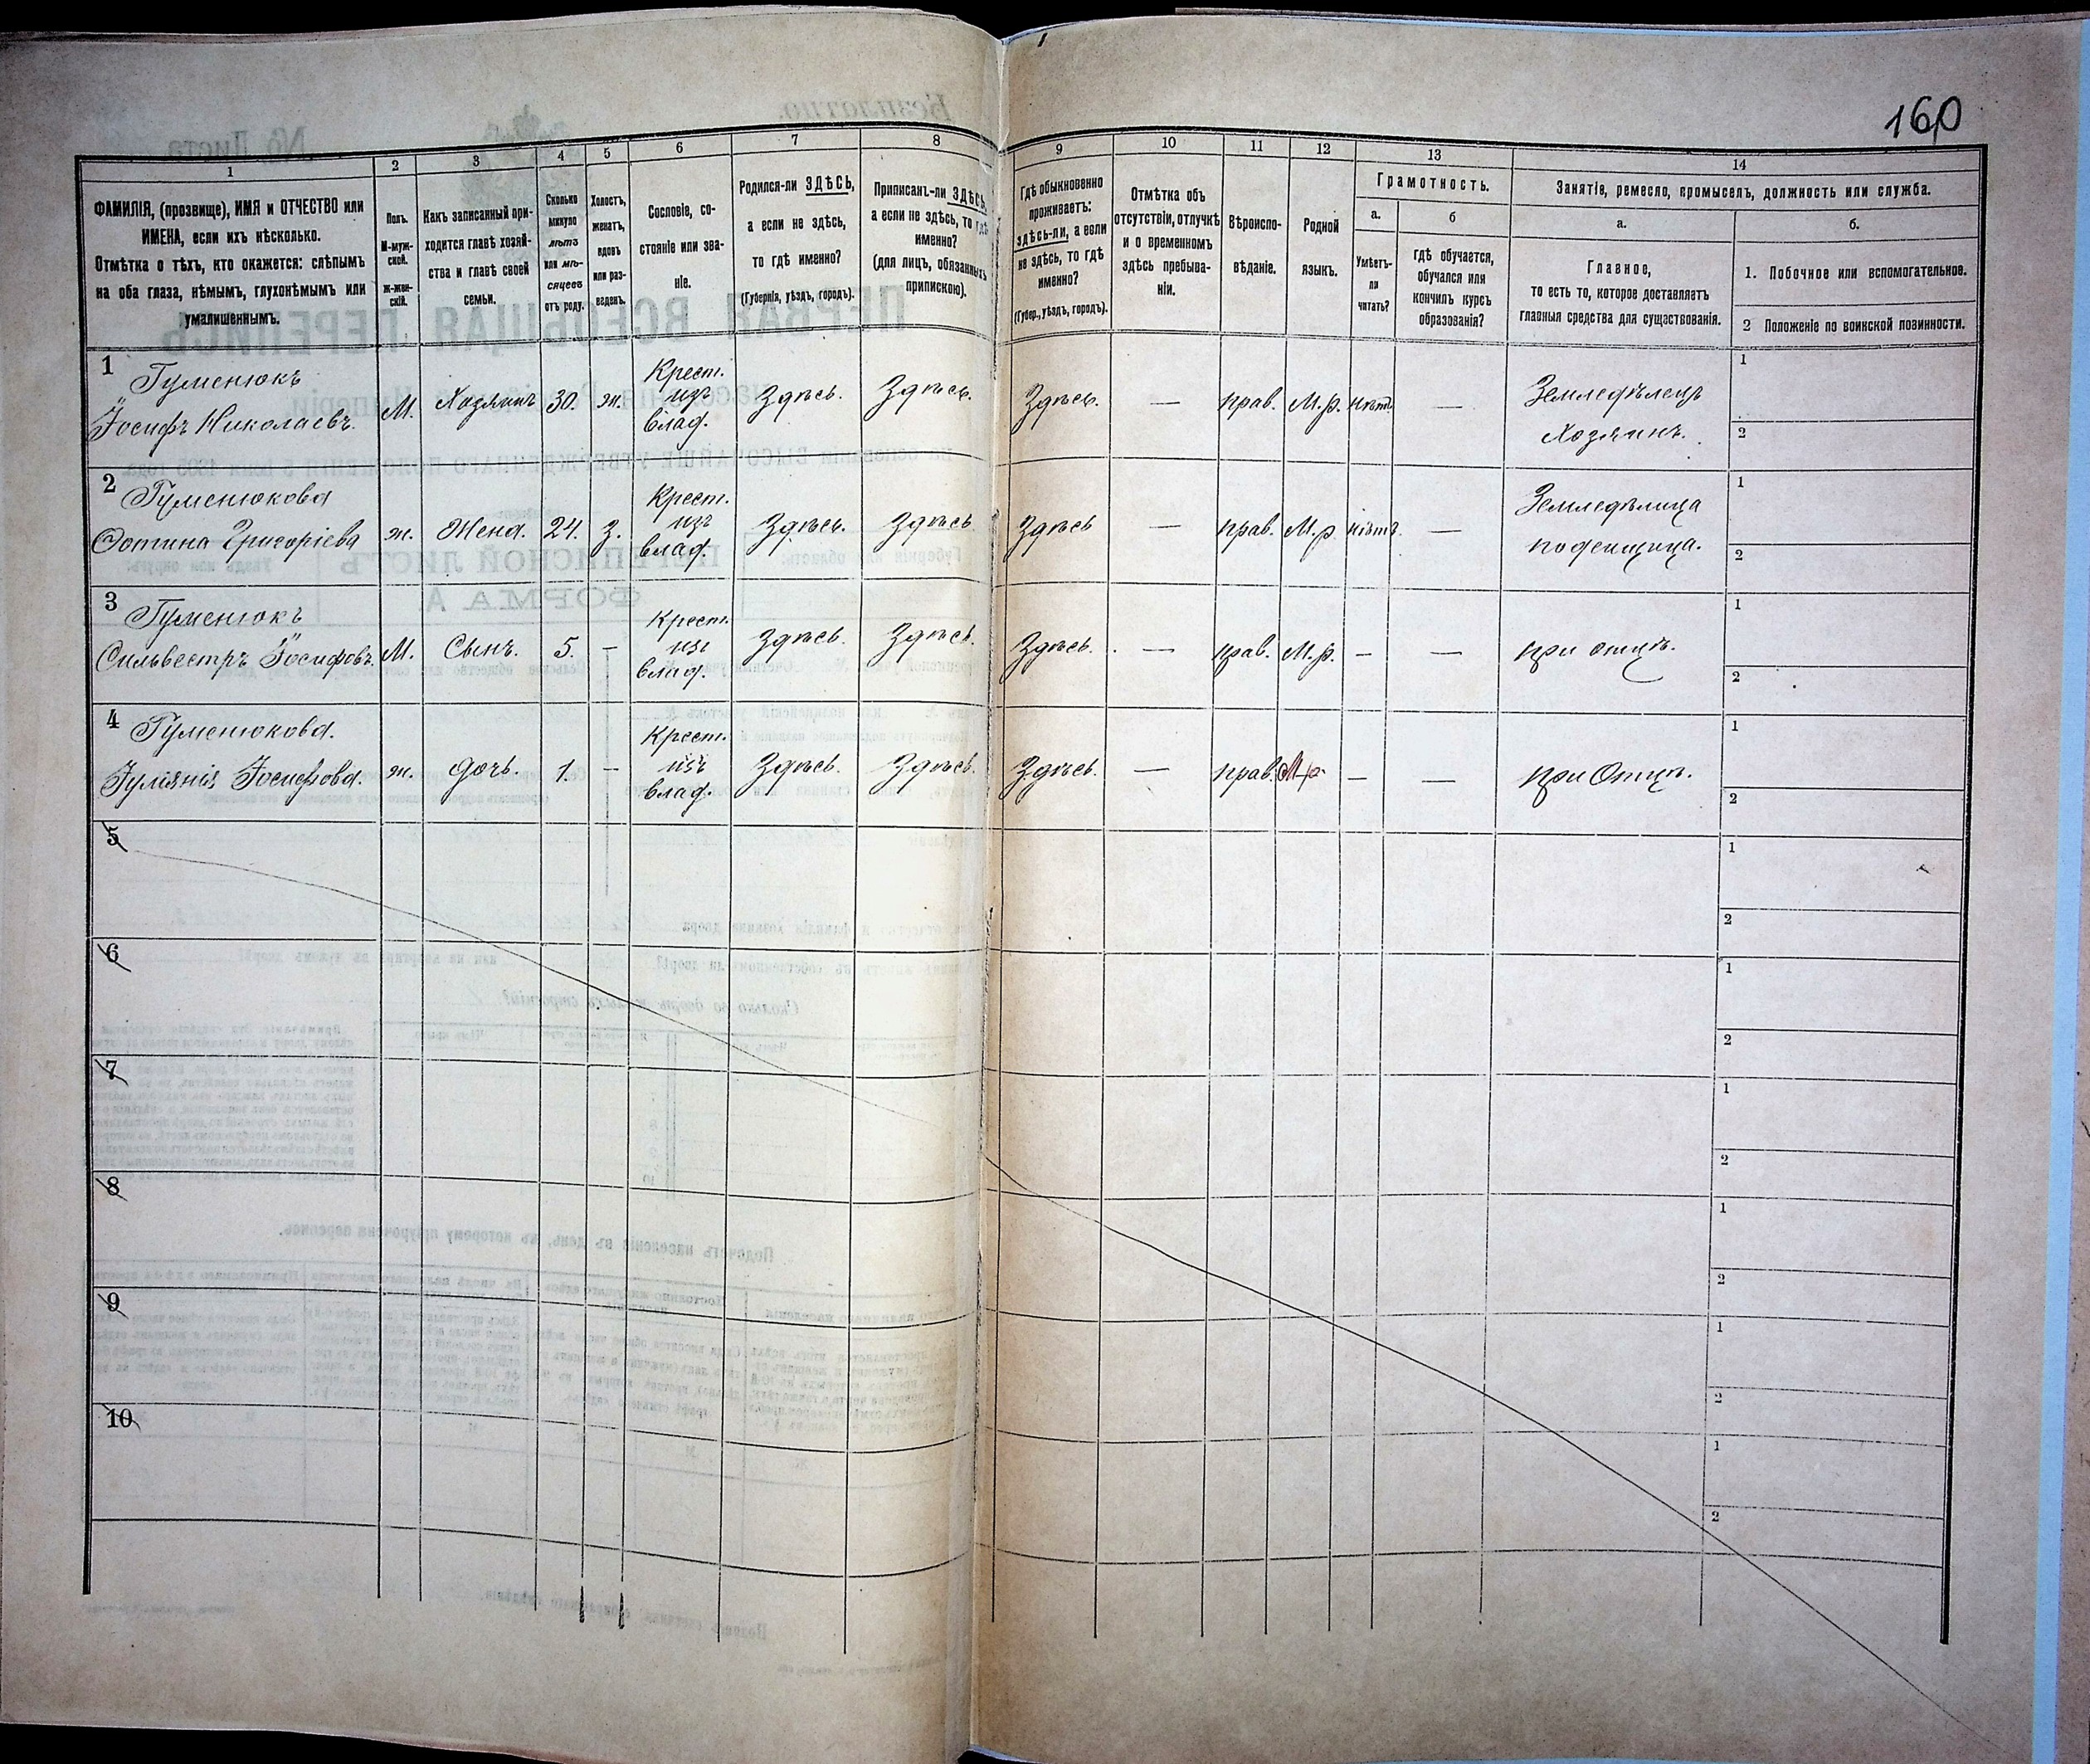 160
1 2 3 4 5 6 7 8 9 10 11 12 13 14
ФАМИЛІЯ, (прозвище), ИМЯ и ОТЧЕСТВО или
ИМЕНА, если ихъ нѣсколько.
Отмѣтка о тѣхъ, кто окажется: слѣпымъ
на оба глаза, нѣмымъ, глухонѣмымъ или
умалишеннымъ.
Полъ.
М-муж-
ской.
ж-жен-
скій.
Какъ записанный при-
ходится главѣ хозяй-
ства и главѣ своей
семьи.
Сколько
минуло
лѣтъ
или мѣ-
сяцевъ
отъ роду.
Холостъ,
женатъ,
вдовъ
или раз-
веденъ.
Сословіе, со-
стояніе или зва-
ніе.
Родился-ли ЗДѢСЬ,
а если не здѣсь,
то гдѣ именно?
(Губернія, уѣздъ, городъ).
Приписанъ-ли ЗДѢСЬ,
а если не здѣсь, то гдѣ
именно?
(для лицъ, обязанныхъ
припискою).
Гдѣ обыкновенно
проживаетъ:
здѣсь-ли, а если
не здѣсь, то гдѣ
именно?
(Губер., уѣздъ, городъ).
Отмѣтка объ
отсутствіи, отлучкѣ
и о временномъ
здѣсь пребыва-
ніи.
Вѣроиспо-
вѣданіе.
Родной
языкъ.
Грамотность.
а.
Умѣетъ-
ли
читать?
б
гдѣ обучается,
обучался или
кончилъ курсъ
образованія?
Занятіе, ремесло, промыселъ, должность или служба.
а.
Главное,
то есть то, которое доставляетъ
главныя средства для существованія.
б.
1. Побочное или вспомогательное.
2 Положеніе по воинской повинности.
1 Гуменюкъ
Іосифъ Николаевъ. М. Хозяинъ 30. ж. Крест. изъ влад. Здѣсь. Здѣсь. Здѣсь. — прав. М.р. нѣтъ — Земледѣлецъ
Хозяинъ.
1
2
2 Гуменюкова
Фотина Григоріева ж. Жена. 24. з. Крест. изъ влад. Здѣсь. Здѣсь Здѣсь — прав. М.р. нѣтъ. — Земледѣлица
поденщица.
1
2
3 Гуменюкъ
Сильвестръ Іосифовъ. М. Сынъ. 5. — Крест. изъ влад. Здѣсь. Здѣсь. Здѣсь. — прав. М.р. — — при отцѣ.
1
2
4 Гуменюкова.
Іуліянія Іосифова. ж. дочь. 1. — Крест. изъ влад. Здѣсь. Здѣсь. Здѣсь. — прав. М.р. — — при Отцѣ.
1
2
5
1
2
6
1
2
7
1
2
8
1
2
9
1
2
10
1
2